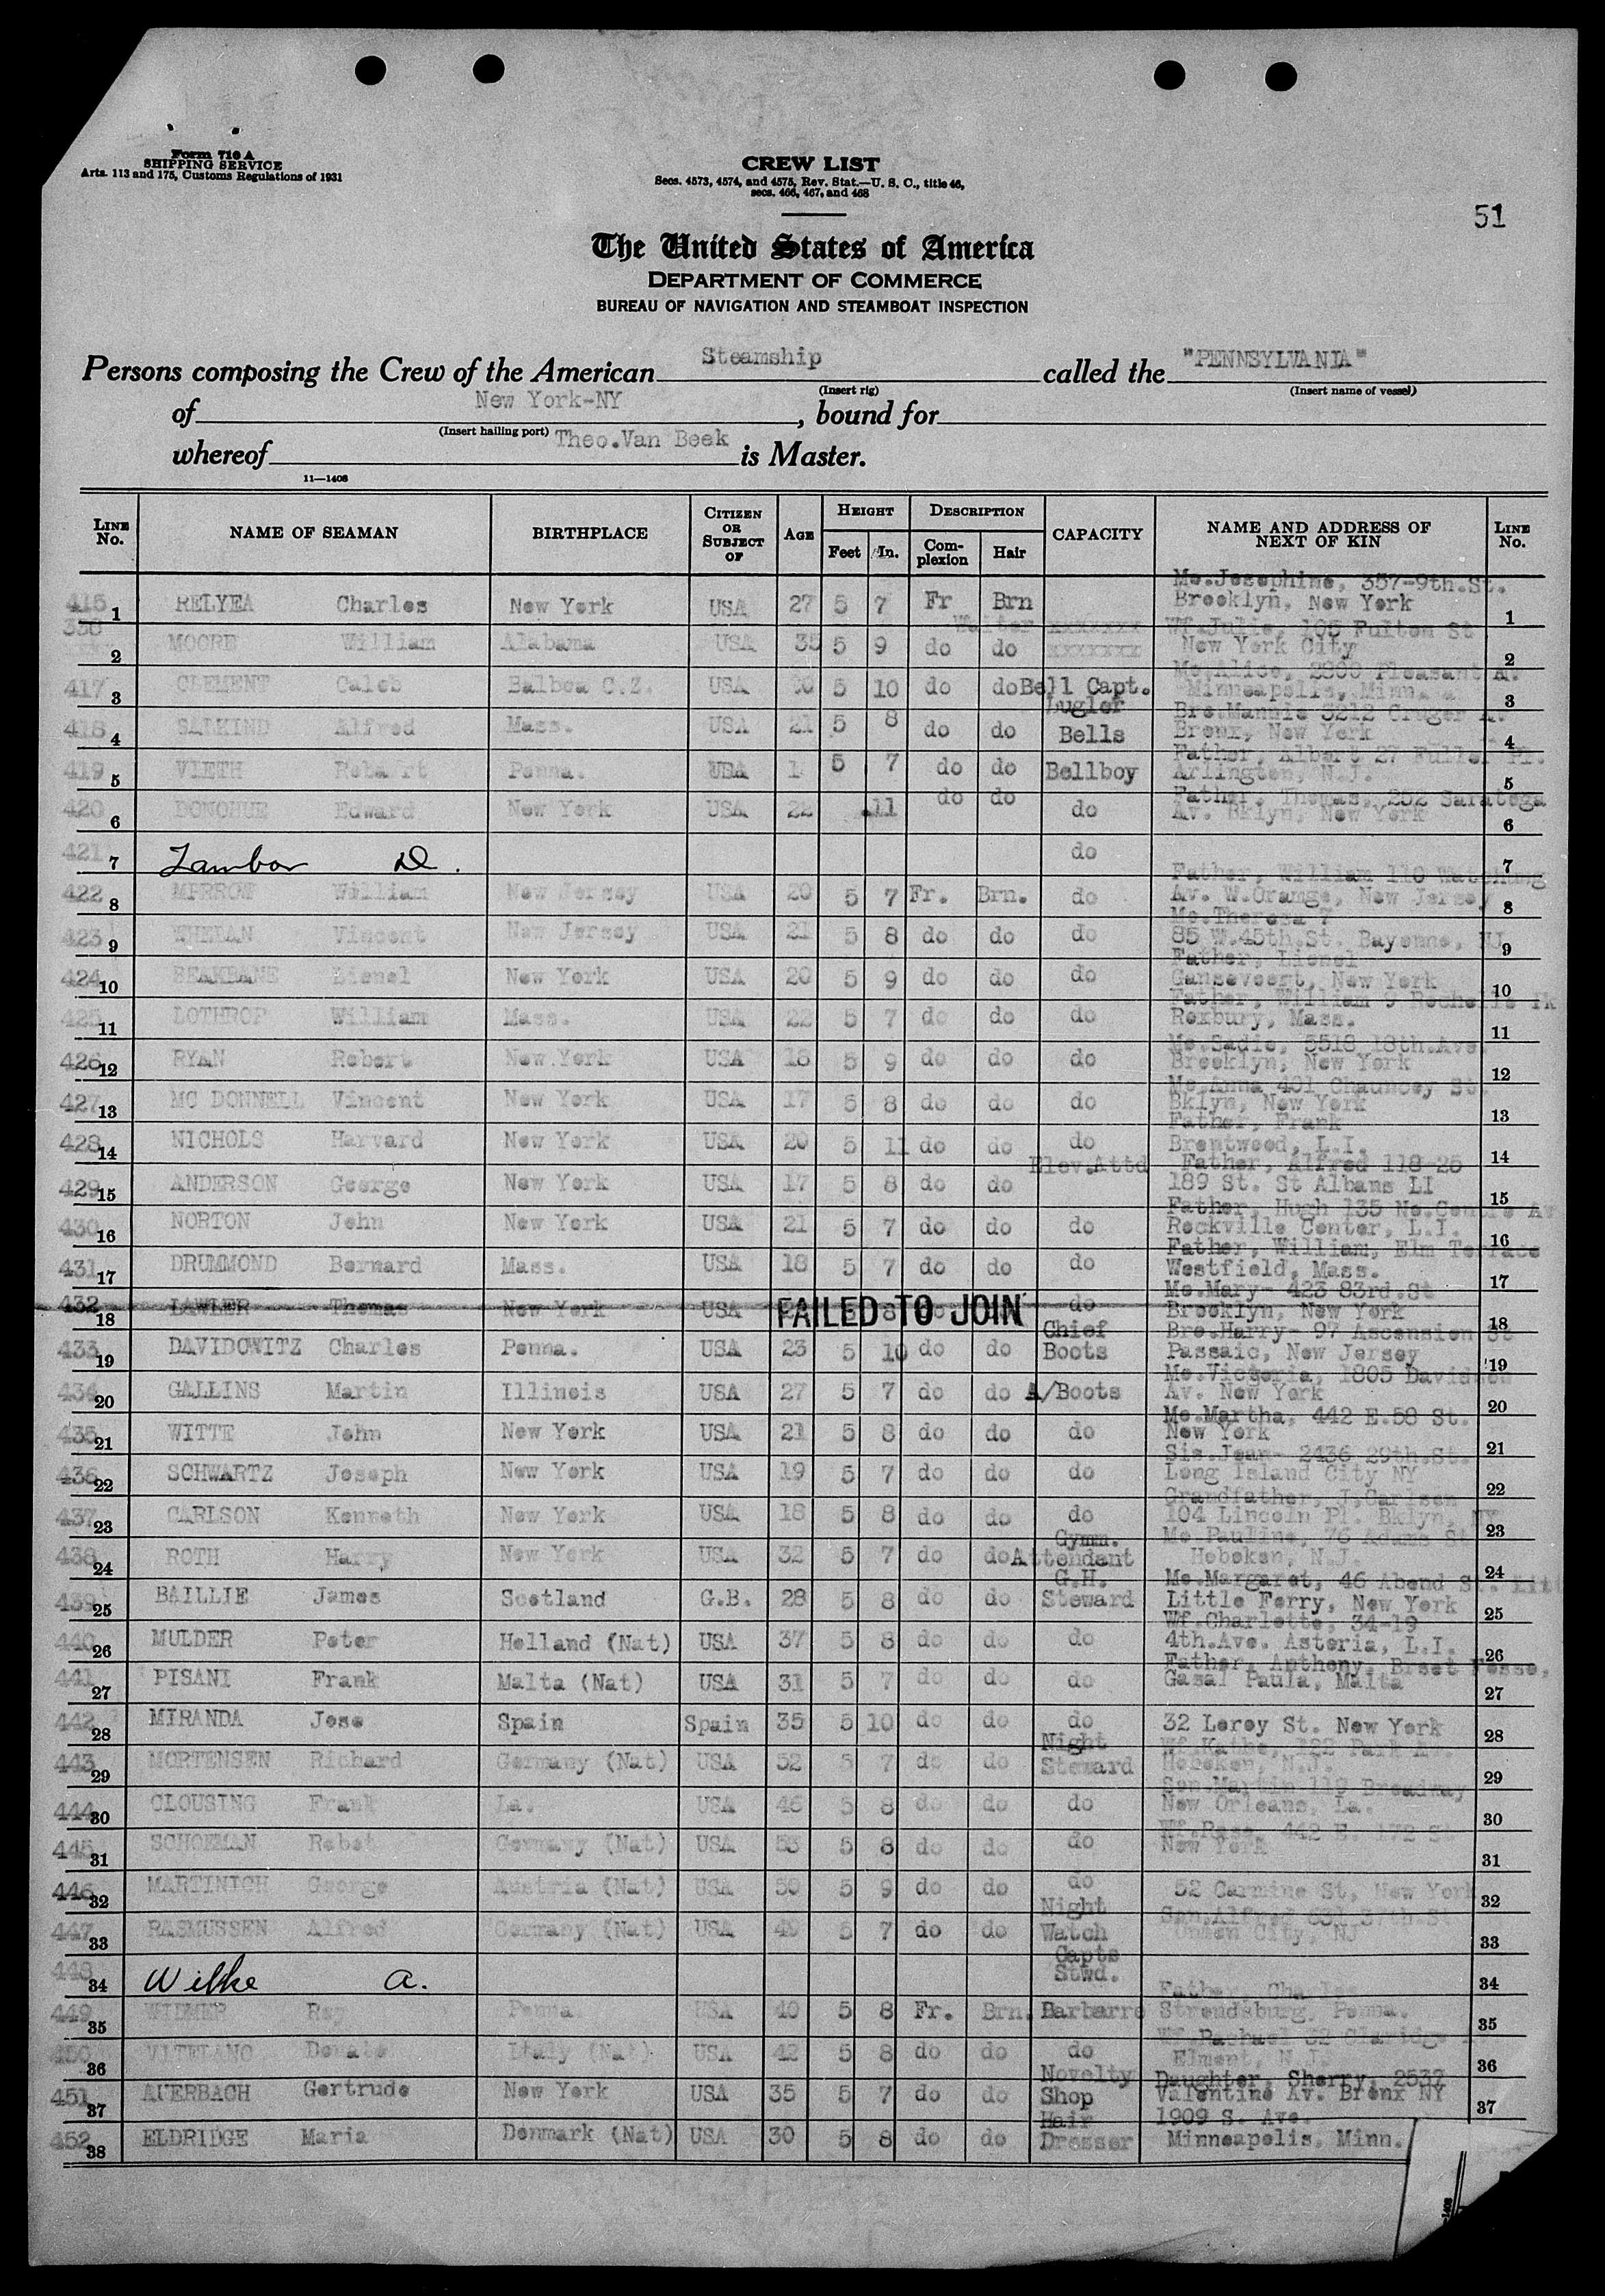 Form 710 A
SHIPPING SERVICE
Arts. 113 and 175, Customs Regulations of 1931
CREW LIST
Secs. 4573, 4574, and 4575, Rev. Stat.—U. S. C., title 46,
secs. 466, 467, and 468
51
The United States of America
DEPARTMENT OF COMMERCE
BUREAU OF NAVIGATION AND STEAMBOAT INSPECTION
Persons composing the Crew of the American Steamship called the "PENNSYLVANIA"
(Insert rig) (Insert name of vessel)
of New York-NY, bound for
(Insert hailing port)
whereof Theo.Van Beek is Master.
11—1408
LINE No. NAME OF SEAMAN BIRTHPLACE CITIZEN OR SUBJECT OF AGE HEIGHT Feet In. DESCRIPTION Complexion Hair CAPACITY NAME AND ADDRESS OF NEXT OF KIN LINE No.
415 1 RELYEA Charles New York USA 27 5 7 Fr Brn Waiter xxxxxxx Mo.Josephine, 357-9th.St. Brooklyn, New York 1
338 2 MOORE William Alabama USA 35 5 9 do do xxxxxxx Wf.Julia, 105 Fulton St New York City 2
417 3 CLEMENT Caleb Balboa C.Z. USA 5 10 do do Bell Capt. Mo.Alice, Pleasant A. Minneapolis, Minn. 3
418 4 SALKIND Alfred Mass. USA 21 5 8 do do Bugler Bells Bro.Mannie 3212 Cruger A. Bronx, New York 4
419 5 VIETH Robert Penna. USA 5 7 do do Bellboy Father, Albert 27 Fuller Arlington, N.J. 5
420 6 DONOHUE Edward New York USA 22 11 do do do Father, Thomas, 252 Saratoga Av. Bklyn, New York 6
421 7 Zambor D. do 7
422 8 William New Jersey USA 20 5 7 Fr. Brn. do Father, William 110 Watchung Av. W.Orange, New Jersey 8
423 9 WHELAN Vincent New Jersey USA 21 5 8 do do do Mo.Theresa 85 W.45th.St. Bayonne, NJ 9
424 10 Lionel New York USA 20 5 9 do do do Father, Lionel Gansevoort, New York 10
425 11 LOTHROP William Mass. USA 22 5 7 do do do Father, William 9 Rochelle Pk Roxbury, Mass. 11
426 12 RYAN Robert New York USA 18 5 9 do do do Mo.Sadie, 5518 18th.Ave. Brooklyn, New York 12
427 13 MC DONNELL Vincent New York USA 17 5 8 do do do Mo.Anna 401 Chauncey St. Bklyn, New York 13
428 14 NICHOLS Harvard New York USA 20 5 11 do do do Father, Frank Brentwood, L.I. 14
429 15 ANDERSON George New York USA 17 5 8 do do Elev.Attd Father, Alfred 118-25 189 St. St Albans LI 15
430 16 NORTON John New York USA 21 5 7 do do do Father, Hugh 135 No.Centre Av Rockville Center, L.I. 16
431 17 DRUMMOND Bernard Mass. USA 18 5 7 do do do Father, William, Elm Terrace Westfield, Mass. 17
432 18 LAWLER Thomas New York USA FAILED TO JOIN 5 8 do Mo.Mary- 423 83rd.St Brooklyn, New York 18
433 19 DAVIDOWITZ Charles Penna. USA 23 5 10 do do Chief Boots Bro.Harry- 97 Ascension St Passaic, New Jersey 19
434 20 GALLINS Martin Illinois USA 27 5 7 do do A/Boots Mo.Victoria, 1805 Davidson Av. New York 20
435 21 WITTE John New York USA 21 5 8 do do do Mo.Martha, 442 E.58 St. New York 21
436 22 SCHWARTZ Joseph New York USA 19 5 7 do do do Sis.Jean- 2436 29th.St. Long Island City NY 22
437 23 CARLSON Kenneth New York USA 18 5 8 do do do Grandfather, J.Carlson 104 Lincoln Pl. Bklyn, NY 23
438 24 ROTH Harry New York USA 32 5 7 do do Gymn. Attendant Mo Pauline, 76 Adams St Hoboken, N.J. 24
439 25 BAILLIE James Scotland G.B. 28 5 8 do do G.H. Steward Mo.Margaret, 46 Abend St. Little Ferry, New York 25
440 26 MULDER Peter Holland (Nat) USA 37 5 8 do do do Wf.Charlotte, 34-19 4th.Ave. Astoria, L.I. 26
441 27 PISANI Frank Malta (Nat) USA 31 5 7 do do do Father, Anthony, Gasal Paula, Malta 27
442 28 MIRANDA Jose Spain Spain 35 5 10 do do do 32 Leroy St. New York 28
443 29 MORTENSEN Richard Germany (Nat) USA 52 5 7 do do Night Steward Wf.Kathe, 122 Park Av. Hoboken, N.J. 29
444 30 CLOUSING Frank La. USA 46 5 8 do do do Son.Martin 119 Broadway New Orleans, La. 30
445 31 SCHOEMAN Robet Germany (Nat) USA 53 5 8 do do do Wf.Rose, 442 E. 172 St New York 31
446 32 MARTINICH George Austria (Nat) USA 50 5 9 do do do 52 Carmine St, New York 32
447 33 RASMUSSEN Alfred Germany (Nat) USA 49 5 7 do do Night Watch Son.Alfred 37th.St Union City, NJ 33
448 34 Wilke A. Capts Stwd. 34
449 35 WIDMER Ray Penna. USA 40 5 8 Fr. Brn. Barbarro Father, Charles Stroudsburg, Penna. 35
450 36 VITELANO Donato Italy (Nat) USA 42 5 8 do do do Wf. Rachael 32 Claridge Elmont, N J. 36
451 37 AUERBACH Gertrude New York USA 35 5 7 do do Novelty Shop Daughter, Sherry, 2537 Valentine Av. Bronx NY 37
452 38 ELDRIDGE Maria Denmark (Nat) USA 30 5 8 do do Hair Dresser 1909 S. Ave. Minneapolis, Minn.